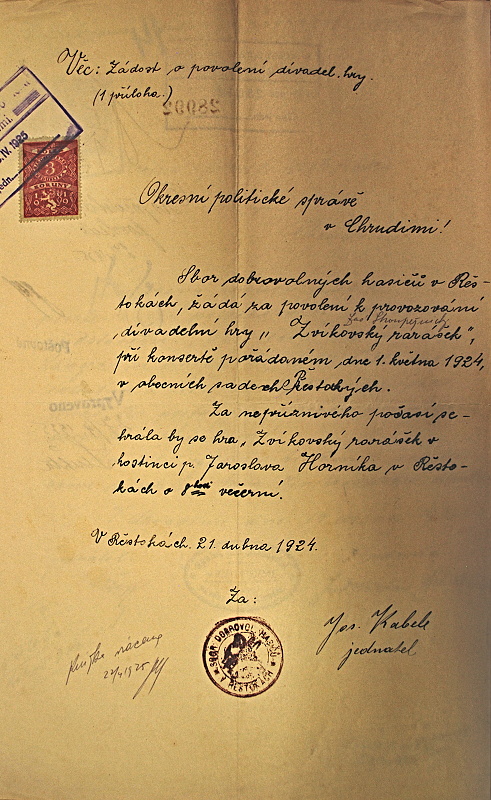 Věc: Žádost o povolení divadel. hry.
(1 příloha.)
28992
IV. 1925
3
KORUNY
1919
Okresní politické správě
v Chrudimi!
Sbor dobrovolných hasičů v Řěs-
tokách, žádá za povolení k provozování
divadelní hry „Zvíkovský rarášek",
při konsertě pořádaném dne 1. května 1924,
v obecních sadech Řěstokých.
Za nepříznivého počasí se-
hrála by se hra „Zvíkovský rarášek v
hostinci p. Jaroslava Horníka v Řěsto-
kách o 8 hod večerní.
V Řěstokách. 21. dubna 1924.
Za:
SBOR DOBROVOL. HASIČŮ
V ŘESTOKÁCH
Jos. Kabele
jednatel
22/4 1925
Vypraveno